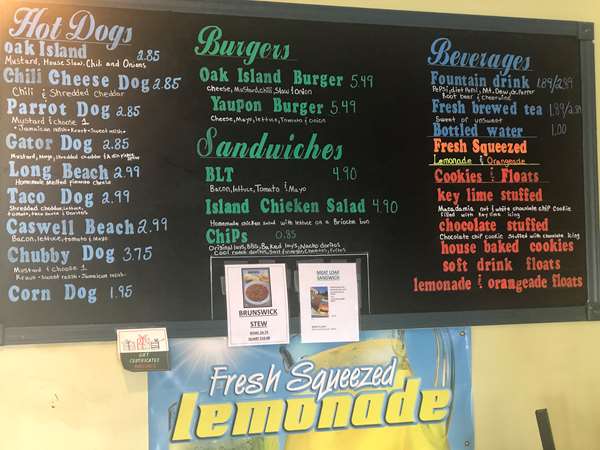 Hot Dogs
Oak Island 2.85
Mustard, House Slaw, Chili and Onions
Chili Cheese Dog 2.85
Chili & Shredded Cheddar
Parrot Dog 2.85
Mustard & choose 1
Gator Dog 2.85
Long Beach 2.99
Homemade melted pimento cheese
Taco Dog 2.99
Shredded cheddar, lettuce,
Caswell Beach 2.99
Bacon, lettuce, tomato & mayo
Chubby Dog 3.75
Mustard & Choose 1
Corn Dog 1.95
Burgers
Oak Island Burger 5.49
Cheese, Mustard, chili, Slaw & Onion
Yaupon Burger 5.49
Cheese, Mayo, lettuce, Tomato & Onion
Sandwiches
BLT 4.90
Bacon, lettuce, Tomato & Mayo
Island Chicken Salad 4.90
Homemade chicken salad with lettuce on a Brioche bun
Chips 0.85
BRUNSWICK
STEW
MEAT LOAF
SANDWICH
Beverages
Fountain drink 1.89/2.39
Pepsi, diet Pepsi, Mt. Dew, Dr. Pepper
Root beer & Cheerwine
Fresh brewed tea 1.89/2.39
Sweet or unsweet
Bottled water 1.00
Fresh Squeezed
Lemonade & Orangeade
Cookies & Floats
key lime stuffed
Macadamia nut & white chocolate chip Cookie
filled with key lime icing
chocolate stuffed
Chocolate chip cookie stuffed with chocolate icing
house baked cookies
soft drink floats
lemonade & orangeade floats
GIFT
CERTIFICATES
Fresh Squeezed
Lemonade